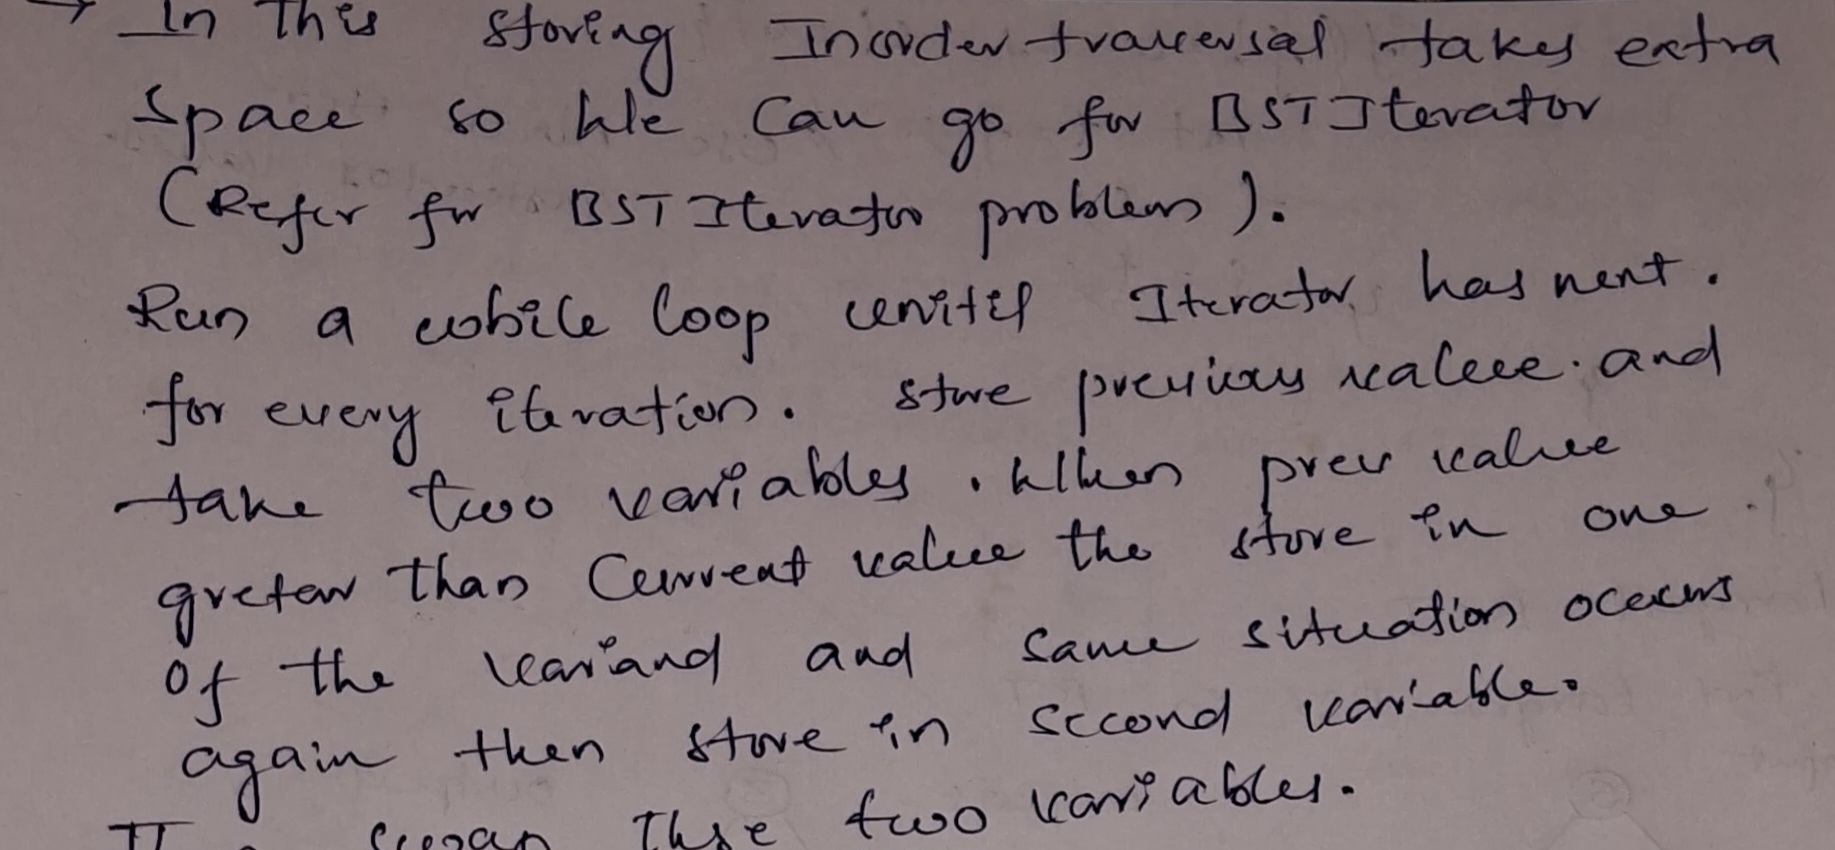 → In this storing Inorder traversal takes extra
space so We can go for BST Iterator
(Refer for BST Iterator problem).
Run a while loop until Iterator has next.
for every iteration. store previous value. and
take two variables. When prev value
greter than Current value the store in one
of the variand and same situation occurs
again then store in second variable.
these two variables.